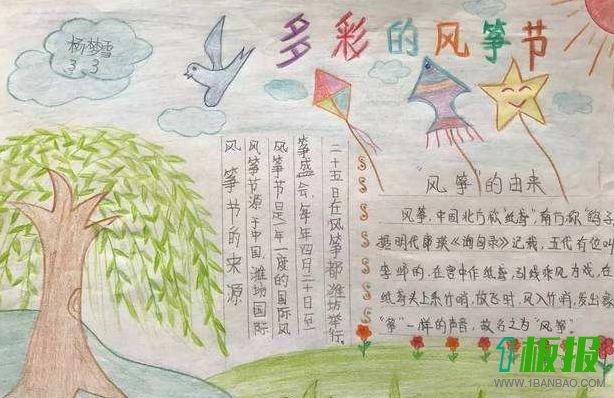 杨梦雪
3 3
多彩的风筝节
风筝节的来源
风筝节源于中国,潍坊国际
风筝节是一年一度的国际风
筝盛会,每年四月二十日至
二十五日在风筝都潍坊举行。
"风筝"的由来
风筝,中国北方称"纸鸢",南方称"鹞子
据明代《询刍录》记载,五代有位叫
李邺的,在宫中作纸鸢,引线乘风为戏,在
纸鸢头上系竹哨,放飞时,风入竹哨,发出
"筝"一样的声音,故名之为"风筝"。
1板报
WWW.1BANBAO.COM